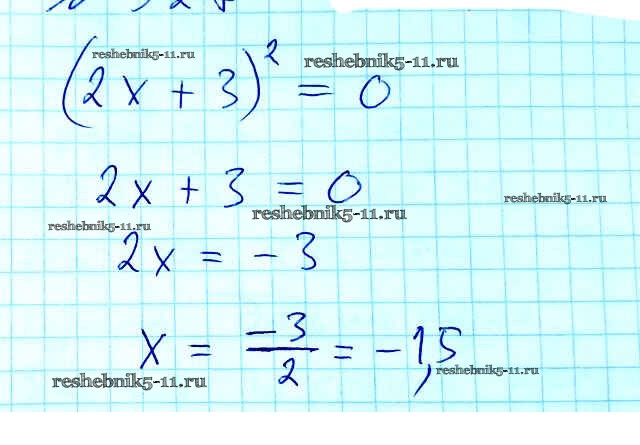 reshebnik5-11.ru
reshebnik5-11.ru
(2x + 3)² = 0
2x + 3 = 0
reshebnik5-11.ru
reshebnik5-11.ru
reshebnik5-11.ru
2x = - 3
x = -3/2 = -1,5
reshebnik5-11.ru
reshebnik5-11.ru